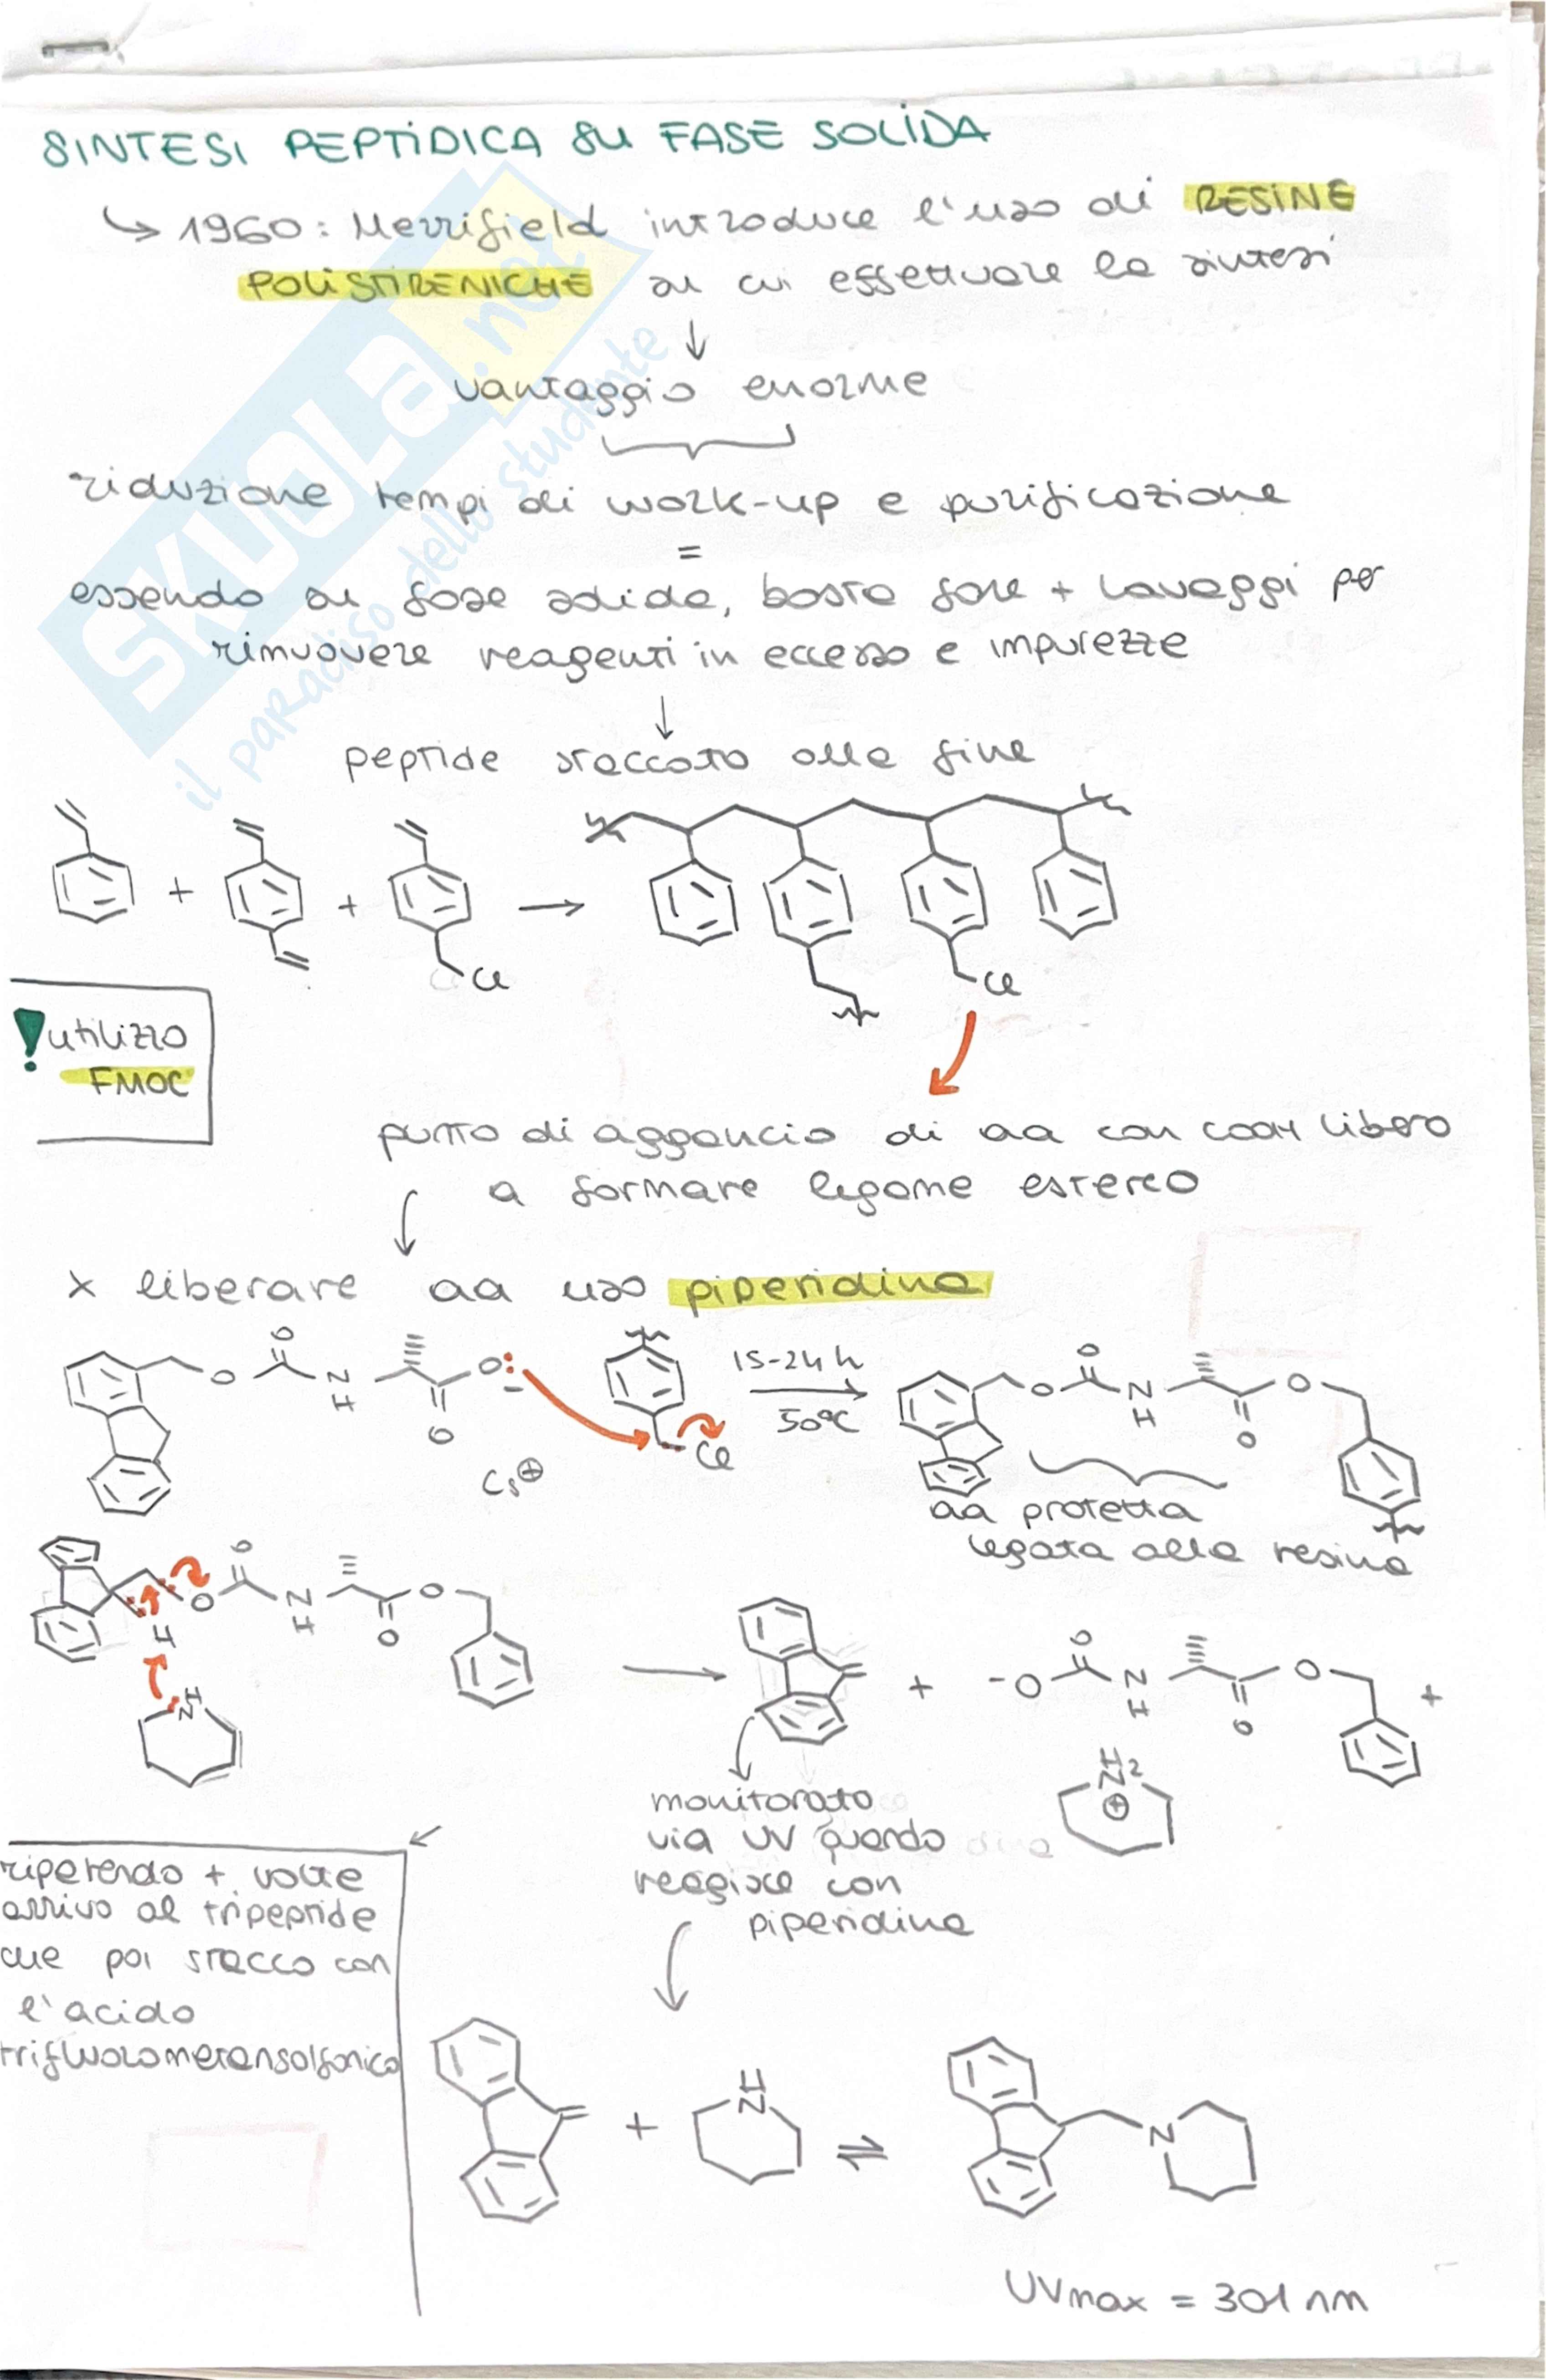 SINTESI PEPTIDICA SU FASE SOLIDA
↳ 1960: Merrifield introduce l'uso di RESINE
POLISTIRENICHE su cui effettuare la sintesi
↓
vantaggio enorme
riduzione tempi di work-up e purificazione
=
essendo su fase solida, basta fare + lavaggi per
rimuovere reagenti in eccesso e impurezze
↓
peptide staccato alla fine
SKUOLA.net
il paradiso dello studente
+ + →
Cl Cl
! utilizzo
FMOC
punto di aggancio di aa con COOH libero
a formare legame estereo
x liberare aa uso piperidina
O O N H O O:⁻ Cs⊕ Cl
15-24 h
50°C
O O N H O O
aa protetta
legata alla resina
H O O N H O O
N H
→ + ⁻O O N H O O +
N H2 ⊕
monitorato
via UV quando
reagisce con
piperidina
ripetendo + volte
arrivo al tripeptide
che poi stacco con
l'acido
trifluorometansolfonico
+ N H ⇌ N
UVmax = 301 nm